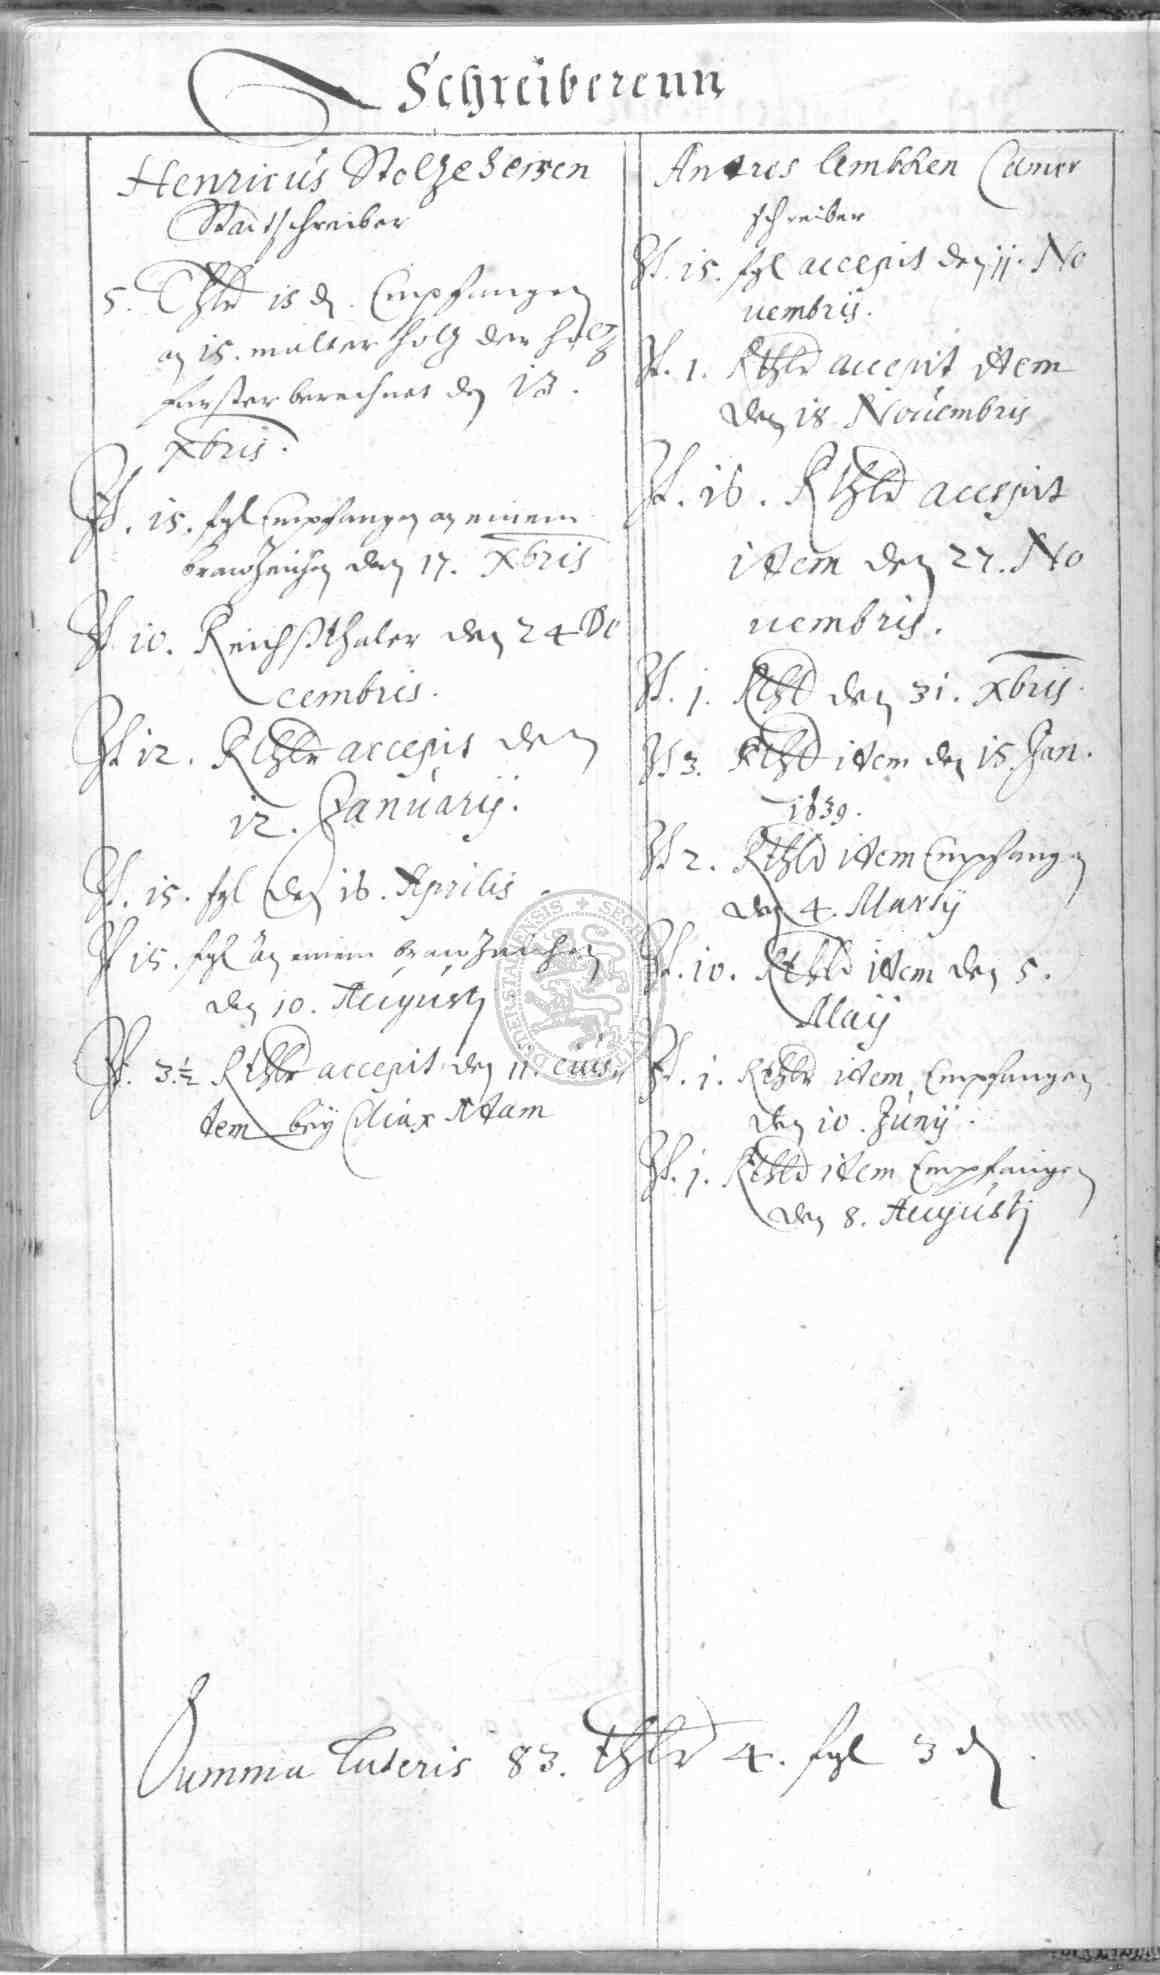 Schreiberenn
Henricus Stolzeheisen
Stadtschreiber
5. Thlr 15 d. Empfangen
an 15. malter holtz der holtz
furster berechnet den 13.
xbris.
It. 15. fgl Empfangen an einem
brawzeichen den 17. xbris
It. 10. Reichßthaler den 24 De
cembris.
It 12. Rthlr accepit den
12. January.
It. 15. fgl den 16. Aprilis
It 15. fgl an einem brawzeichen
den 10. Augusti
It. 3.½ Rthlr accepit den 11. eius
dem bey Max Adam
Andres Lembken Camer
schreiber
It. 15. fgl accepit den 11. No
uembris.
It. 1. Rthlr accepit item
den 18 Nouembris
It. 16. Rthlr accepit
item den 27. No
uembris.
It. 1. Rthlr den 31. xbris.
It 3. Rthlr item den 15. Jan.
1639.
It 2. Rthlr item Empfangen
den 4. Marty
It. 10. Rthlr item den 5.
May
It. 1. Rthlr item Empfangen
den 10. Juny.
It. 1. Rthlr item Empfangen
den 8. Augusti
Summa Lateris 83. Thlr 4. fgl 3 d.